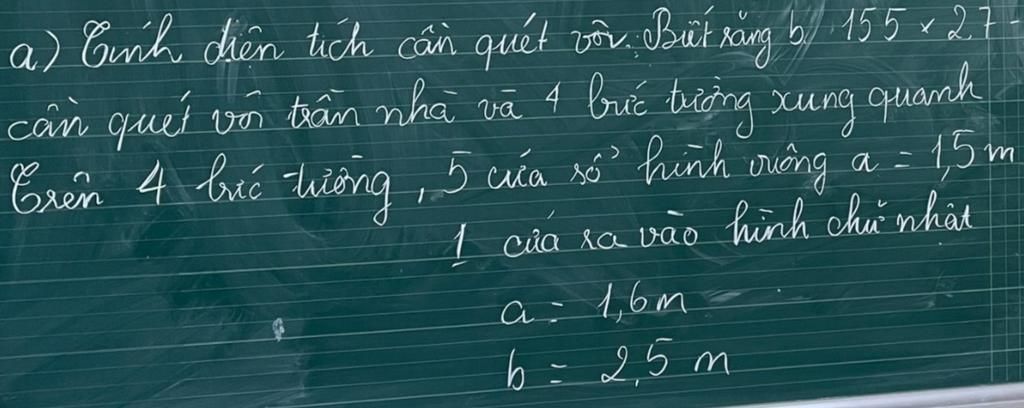 a) Tính diện tích cần quét vôi. Biết rằng b 155 × 27
cần quét vôi trần nhà và 4 bức tường xung quanh
Trên 4 bức tường, 5 cửa sổ hình vuông a = 1,5 m
1 cửa ra vào hình chữ nhật
a = 1,6 m
b = 2,5 m